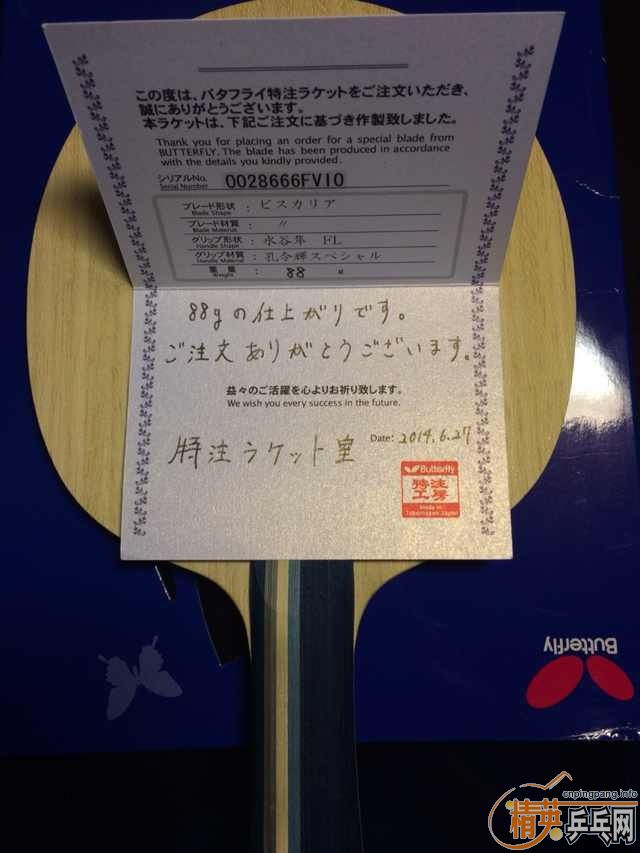 この度は、バタフライ特注ラケットをご注文いただき、
誠にありがとうございます。
本ラケットは、下記ご注文に基づき作製致しました。
Thank you for placing an order for a special blade from
BUTTERFLY. The blade has been produced in accordance
with the details you kindly provided.
シリアルNo.
Serial Number
0028666FVIO
ブレード形状 : ビスカリア
Blade Shape
ブレード材質 : 〃
Blade Material
グリップ形状 : 水谷隼 FL
Handle Shape
グリップ材質 : 孔令輝スペシャル
Handle Material
重量 : 88 g
Weight
88gの仕上がりです。
ご注文ありがとうございます。
益々のご活躍を心よりお祈り致します。
We wish you every success in the future.
Date: 2014.6.27
特注ラケット室
Butterfly
特注
工房
Made in
Tokorozawa Japan
Butterfly
cnpingpang.info
精英乒乓网